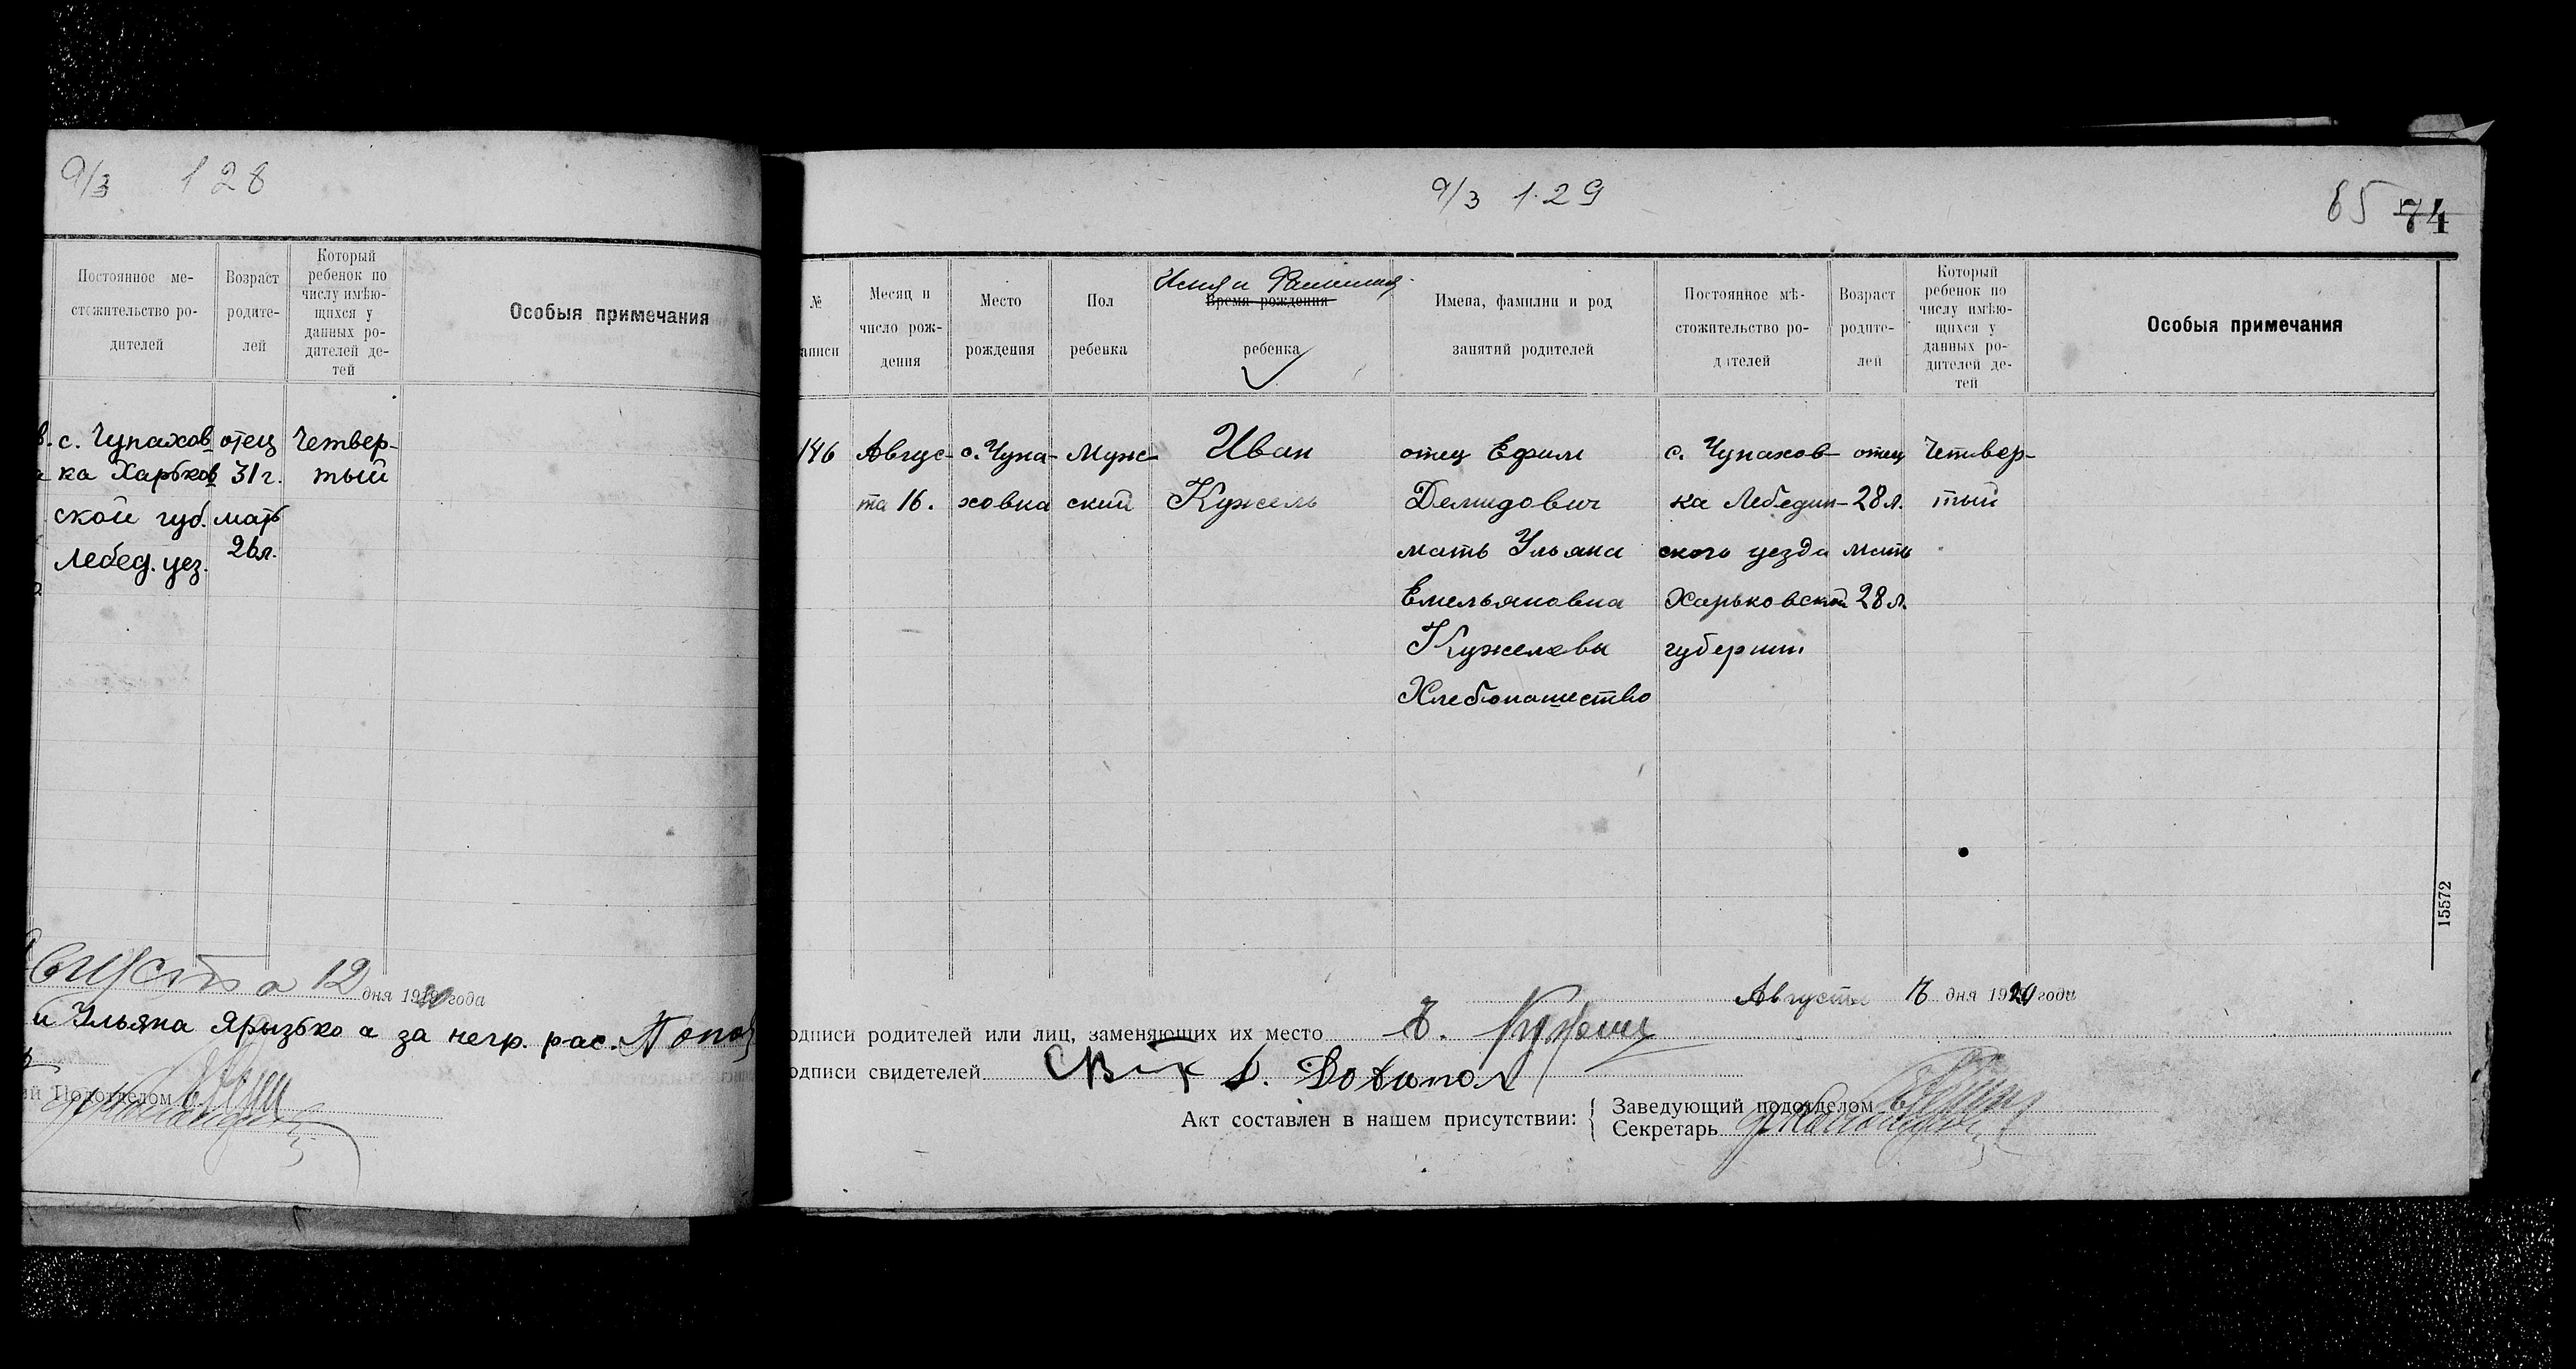 9/3 128
Постоянное ме-
стожительство ро-
дителей
Возраст
родите-
лей
Который
ребенок по
числу имѣю-
щихся у
данных ро-
дителей де-
тей
Особыя примечания
с. Чупахов
ка Харьков
ской губ.
Лебед. уез.
отец
31 г.
мать
26 л.
Четвер-
тый
августа 12 дня 1920 года
и Ульяна Яризько а за негр. рас.
Подотделом
9/3 1.29
65 74
№
аписи
Месяц и
число рож-
дения
Место
рождения
Пол
ребенка
Имя и Фамилия
Время рождения
ребенка
Имена, фамилии и род
занятий родителей
Постоянное мѣ-
стожительство ро-
дителей
Возраст
родите-
лей
Который
ребенок по
числу имѣю-
щихся у
данных ро-
дителей де-
тей
Особыя примечания
146
Авгус-
та 16.
с. Чупа-
ховка
Муж-
ский
Иван
Кужель
отец Ефим
Демидович
мать Ульяна
Емельяновна
Кужелевы
Хлебопашество
с. Чупахов-
ка Лебедин-
ского уезда
Харьковской
губернии
отец
28 л.
мать
28 л.
Четвер-
тый
15572
Августа дня 1920 года
одписи родителей или лиц, заменяющих их место
одписи свидетелей
Акт составлен в нашем присутствии:
Заведующий подотделом
Секретарь